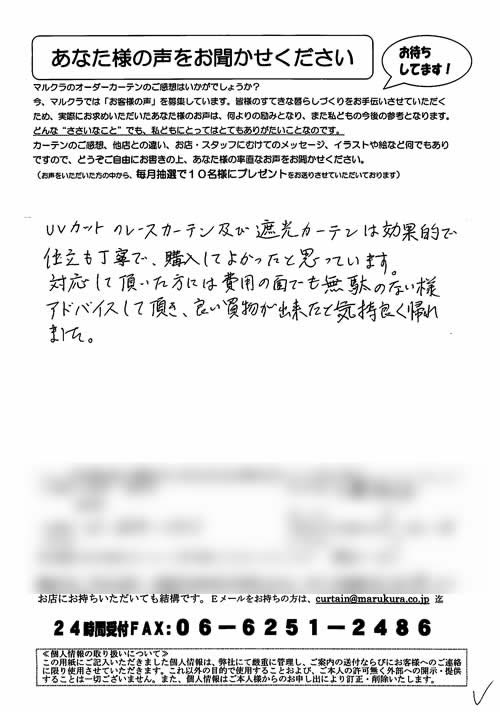 あなた様の声をお聞かせください
お待ち
してます！
マルクラのオーダーカーテンのご感想はいかがでしょうか？
今、マルクラでは「お客様の声」を募集しています。皆様のすてきな暮らしづくりをお手伝いさせていただく
ため、実際にお求めいただいたあなた様のお声は、何よりの励みとなり、また私どもの今後の参考となります。
どんな“ささいなこと”でも、私どもにとってはとてもありがたいことなのです。
カーテンのご感想、他店との違い、お店・スタッフにむけてのメッセージ、イラストや絵など何でもあり
ですので、どうぞご自由にお書きの上、あなた様の率直なお声をお聞かせください。
（お声をいただいた方の中から、毎月抽選で１０名様にプレゼントをお送りさせていただいております）
UVカットのレースカーテン及び遮光カーテンは効果的で
仕立も丁寧で、購入してよかったと思っています。
対応して頂いた方には費用の面でも無駄のない様
アドバイスして頂き、良い買物が出来たと気持良く帰れ
ました。
お店にお持ちいただいても結構です。Ｅメールをお持ちの方は、curtain@marukura.co.jp 迄
２４時間受付ＦＡＸ：０６－６２５１－２４８６
≪個人情報の取り扱いについて≫
この用紙にご記入いただきました個人情報は、弊社にて厳重に管理し、ご案内の送付ならびにお客様へのご連絡
に限り使用させていただきます。これ以外の目的で使用すること、および、ご本人の許可無く外部への開示・提供
することは一切ございません。また、個人情報はご本人様からのお申し出により訂正・削除いたします。